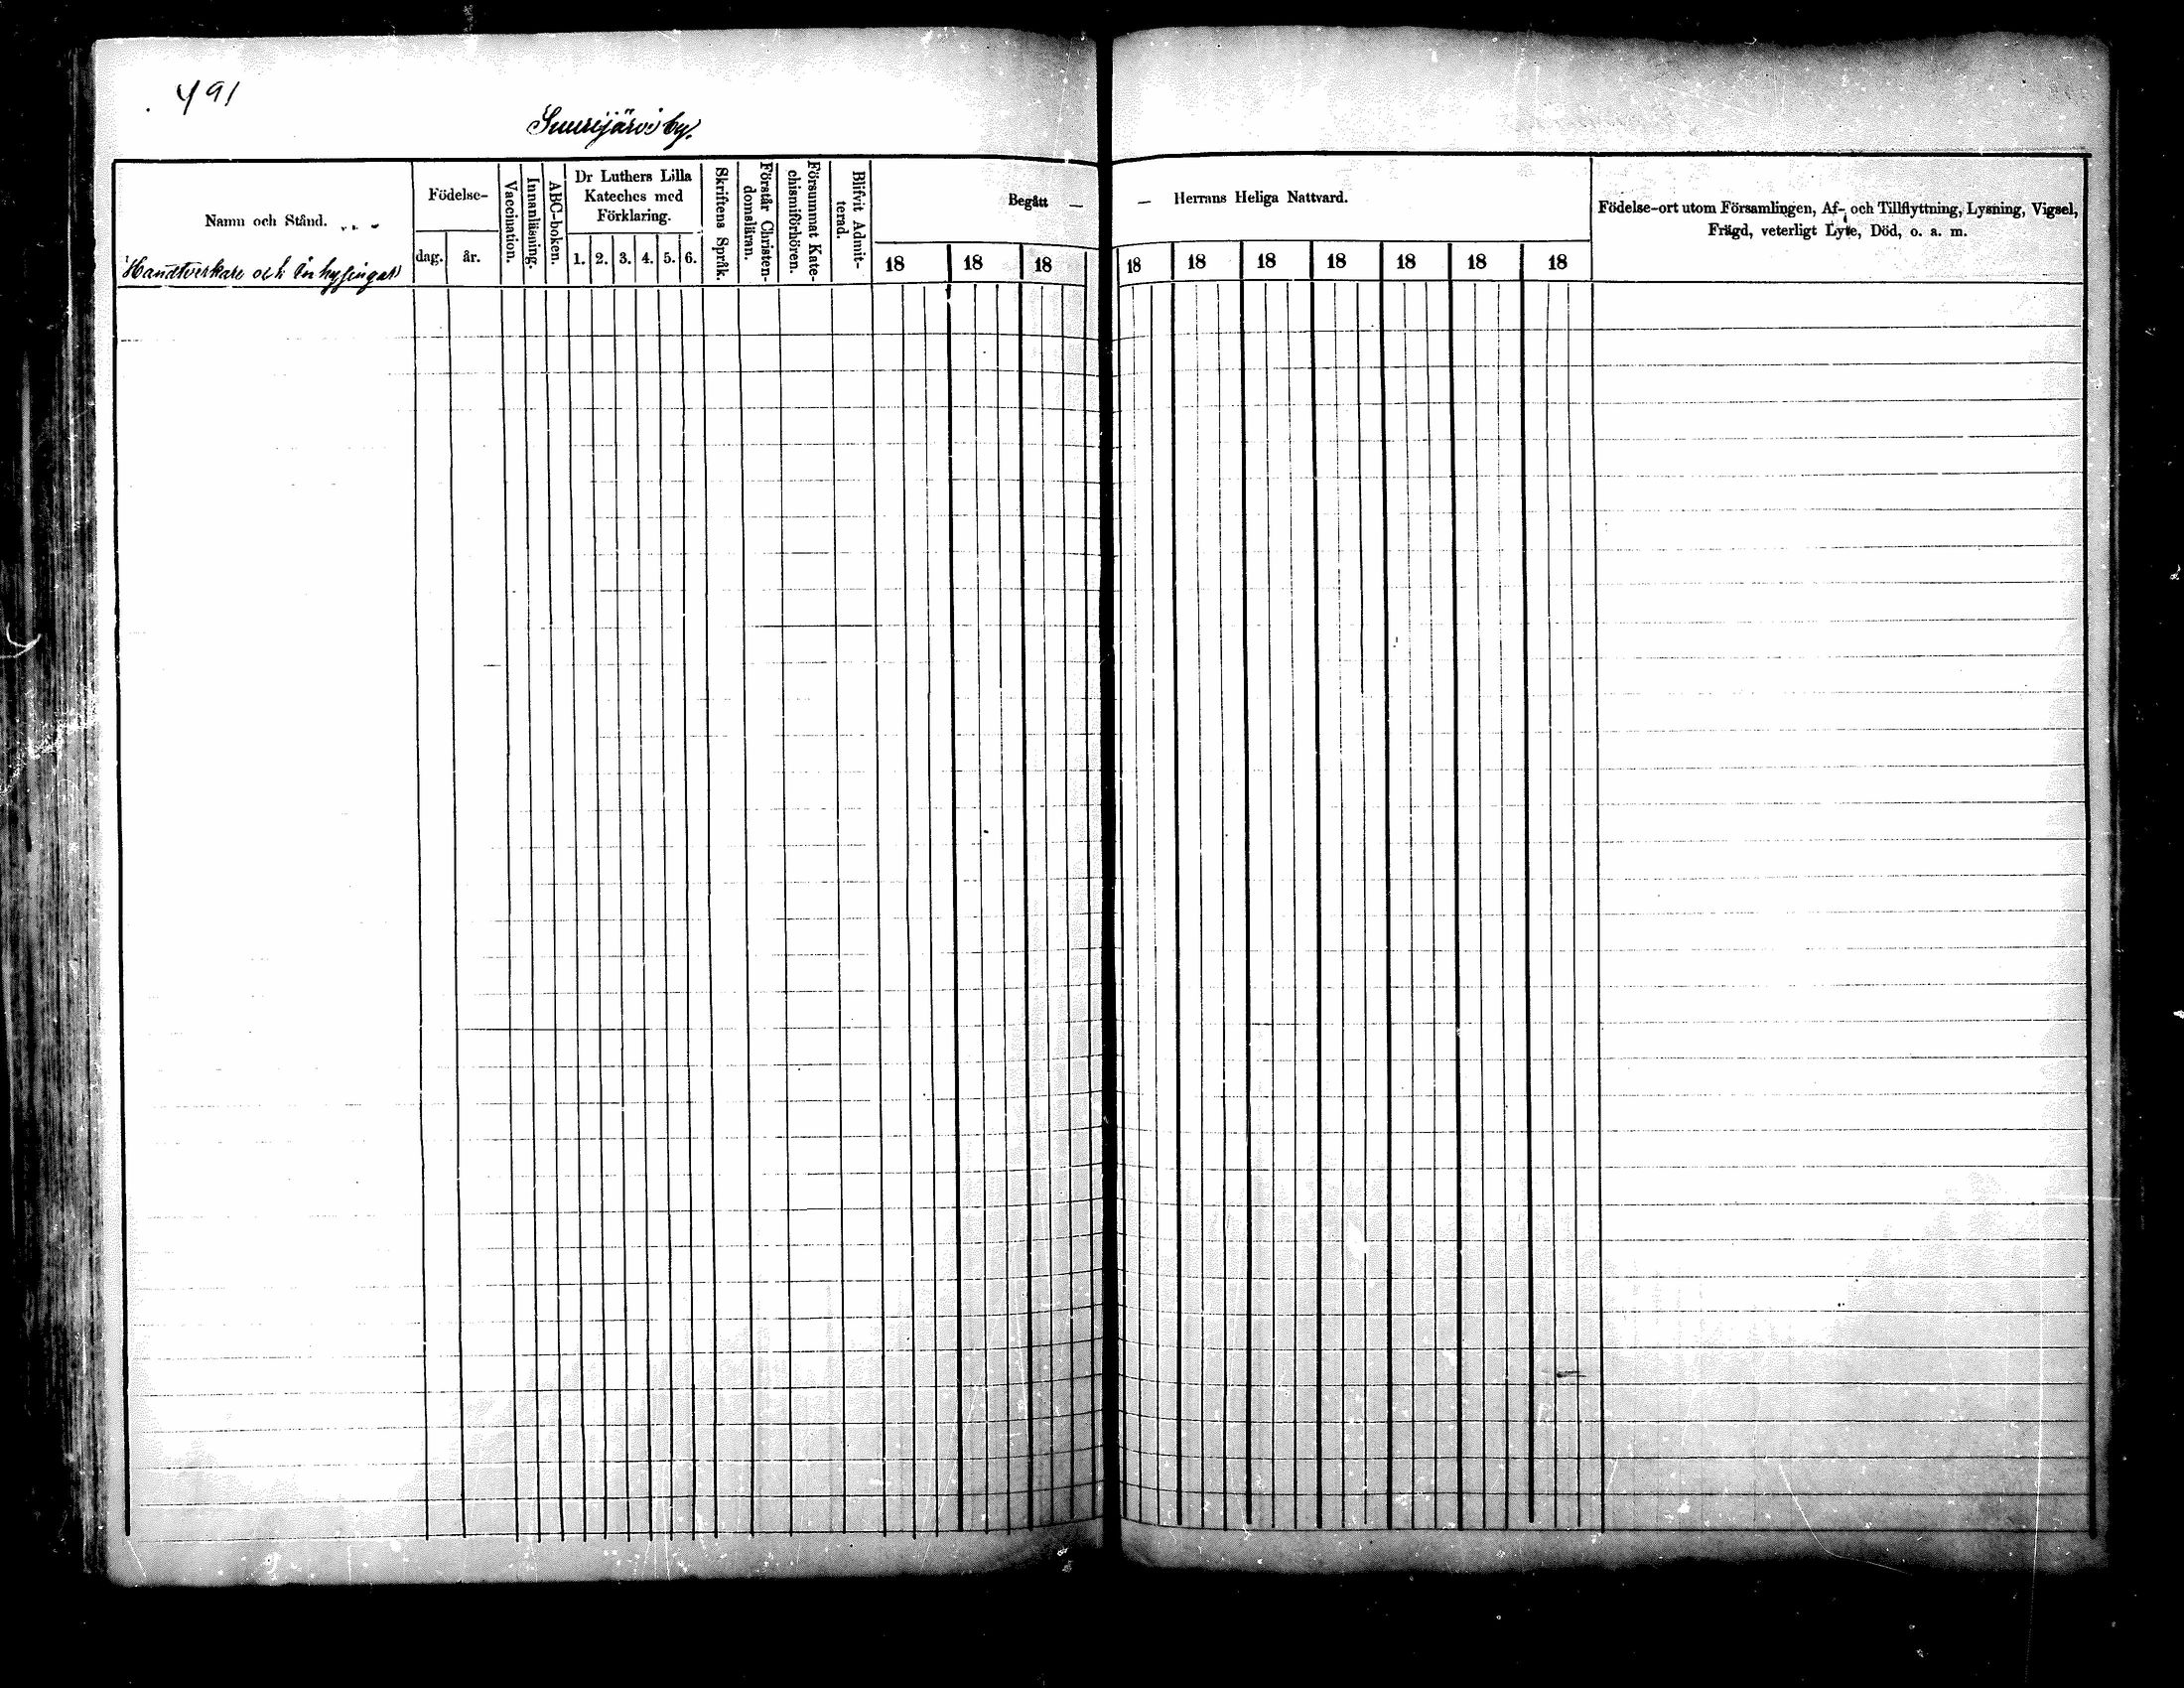 491
Suurijärvi by.
Namn och Stånd.
Handtverkare och Inhysingar
Födelse-
dag. år.
Vaccination.
Innanläsning.
ABC-boken.
Dr Luthers Lilla
Kateches med
Förklaring.
1. 2. 3. 4. 5. 6.
Skriftens Språk.
Förstår Christen-
domsläran.
Försummat Kate-
chismiförhören.
Blifvit Admit-
terad.
Begått —
18 18 18
— Herrans Heliga Nattvard.
18 18 18 18 18 18 18
Födelse-ort utom Församlingen, Af- och Tillflyttning, Lysning, Vigsel,
Frägd, veterligt Lyte, Död, o. a. m.